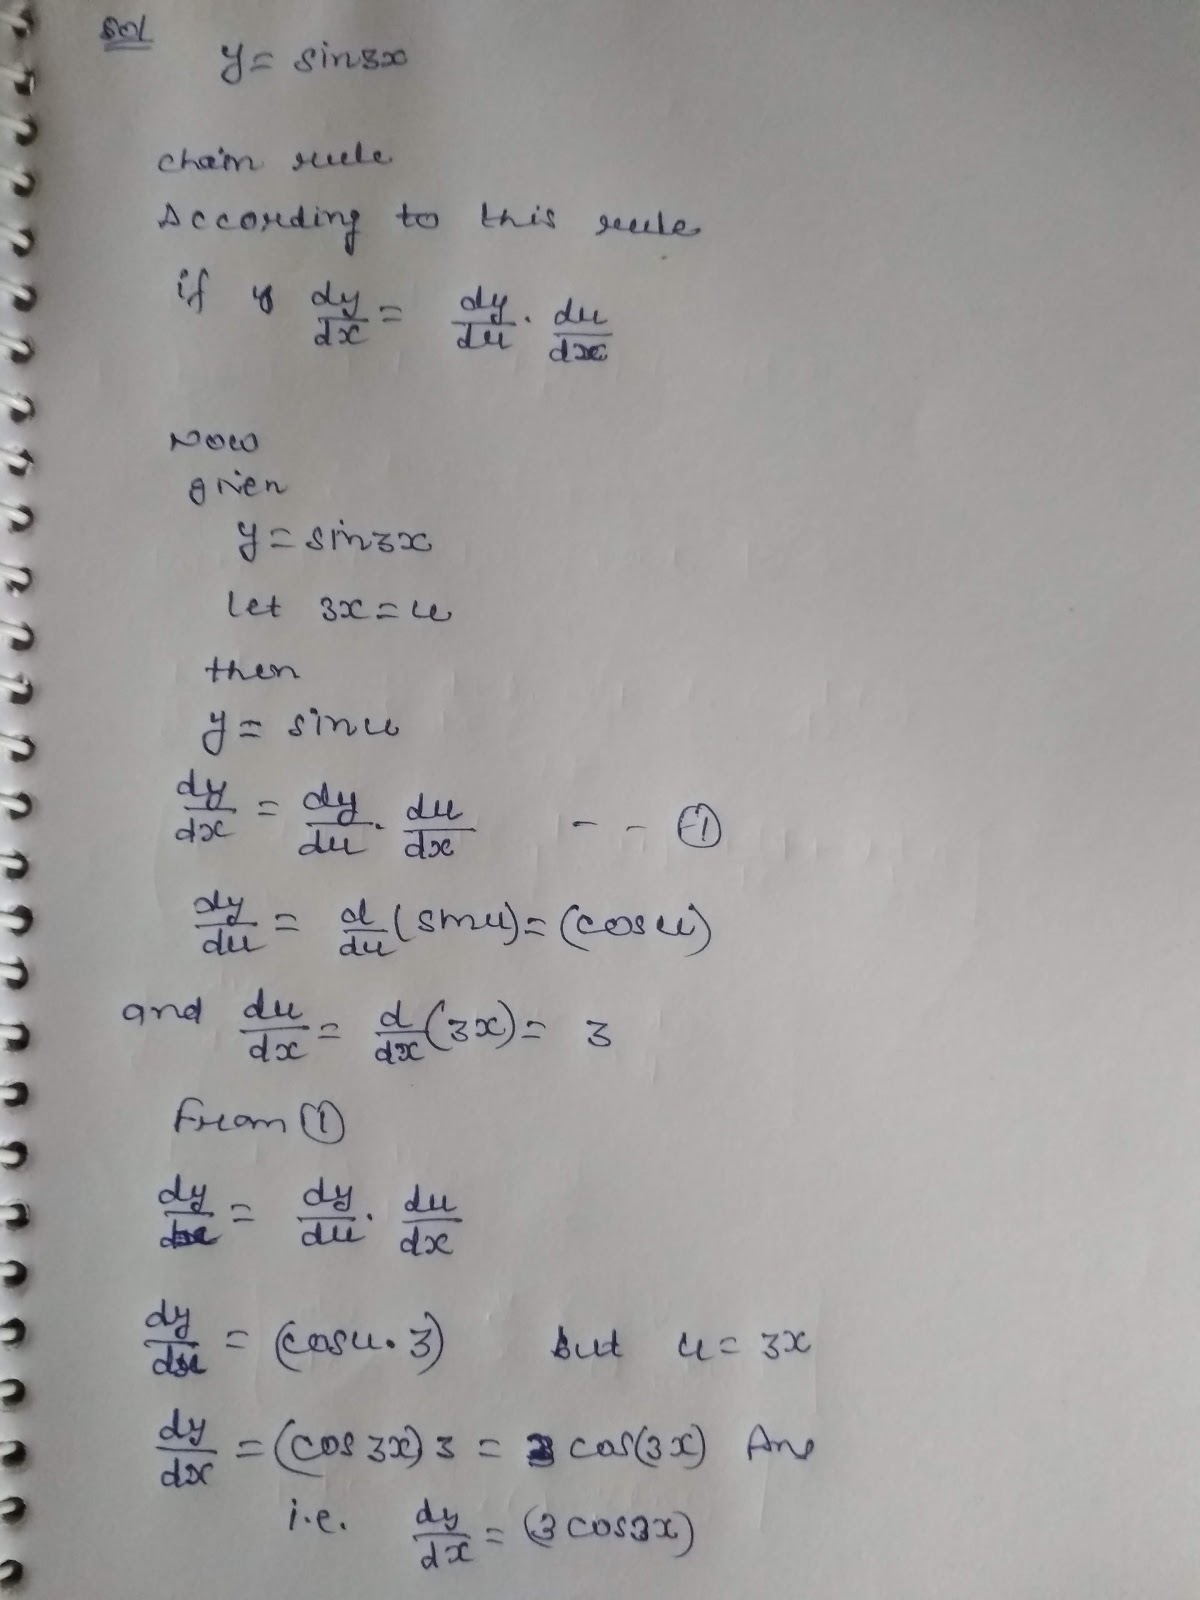 Sol
y = sin3x
chain rule
According to this rule
if y dy/dx = dy/du . du/dx
Now
given
y = sin3x
let 3x = u
then
y = sinu
dy/dx = dy/du . du/dx - - ①
dy/du = d/du (sinu) = (cosu)
and du/dx = d/dx (3x) = 3
From ①
dy/dx = dy/du . du/dx
dy/dx = (cosu . 3) but u = 3x
dy/dx = (cos 3x) 3 = 3 cos(3x) Ans
i.e. dy/dx = (3 cos3x)